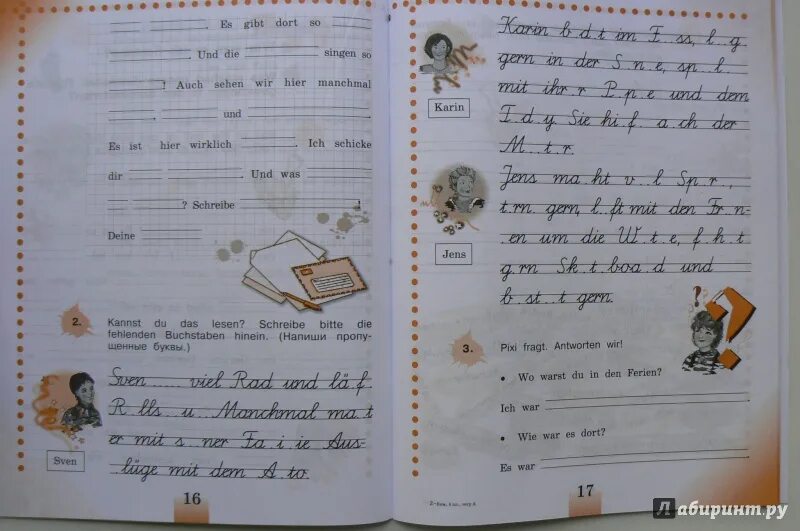 ____ ____. Es gibt dort so
____ ____. Und die ____ singen so
____? Auch sehen wir hier manchmal
____ ____ und ____.
Es ist hier wirklich ____. Ich schicke
dir ____ ____. Und was ____
____ ____? Schreibe ____!
Deine ____
2. Kannst du das lesen? Schreibe bitte die
fehlenden Buchstaben hinein. (Напиши пропу-
щенные буквы.)
Sven .... viel Rad und lä.f.
R.lls..u.. Manchmal ma..t
er mit s..ner Fa.i.ie Aus-
.lüge mit dem A.to.
Sven
16
Karin b.d.t im F..ss, l..g.
gern in der S.n.e, sp..l.
mit ihr.r P.p.e und dem
T.d.y. Sie hi.f. a.ch der
M..t.r.
Karin
Jens ma.ht v..l Sp.r.,
t.rn. gern, l..ft mit den Fr..n-
.en um die W.t.e, f.h.t
g.rn Sk.t.boa.d und
b.st..t gern.
Jens
3. Pixi fragt. Antworten wir!
• Wo warst du in den Ferien?
Ich war ____
• Wie war es dort?
Es war ____
17
Лабиринт.ру